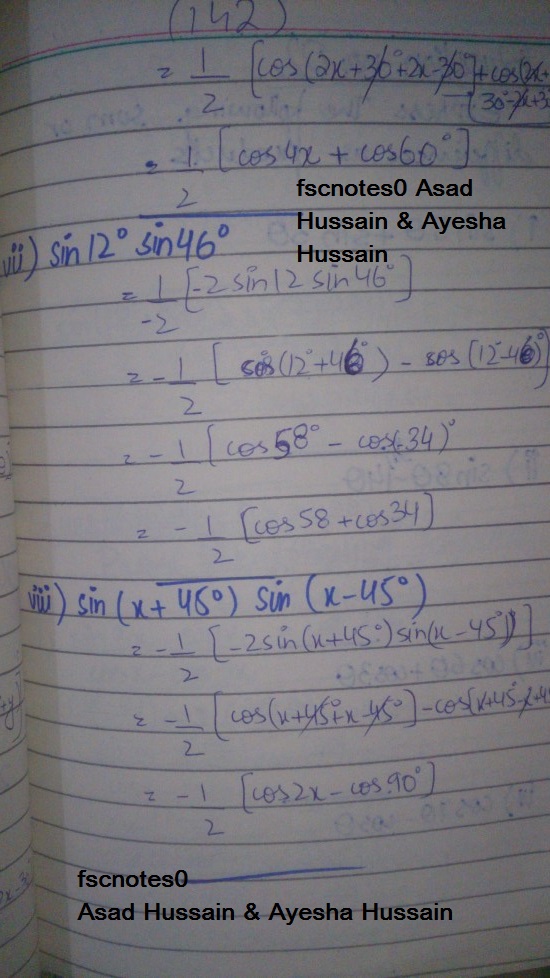 (142)
= 1/2 [cos(2x+30°+2x-30°)+cos(2x+
30°-2x+3
= 1/2 [cos4x + cos60°]
fscnotes0 Asad
Hussain & Ayesha
Hussain
vii) sin12° sin46°
= 1/-2 [-2 sin12 sin46°]
= -1/2 [cos(12°+46°) - cos(12°-46°)]
= -1/2 [cos58° - cos(-34)°]
= -1/2 [cos58 + cos34]
viii) sin(x+45°) sin(x-45°)
= -1/2 [-2sin(x+45°)sin(x-45°)]
= -1/2 [cos(x+45°+x-45°]-cos(x+45-x+45
= -1/2 [cos2x - cos90°]
fscnotes0
Asad Hussain & Ayesha Hussain